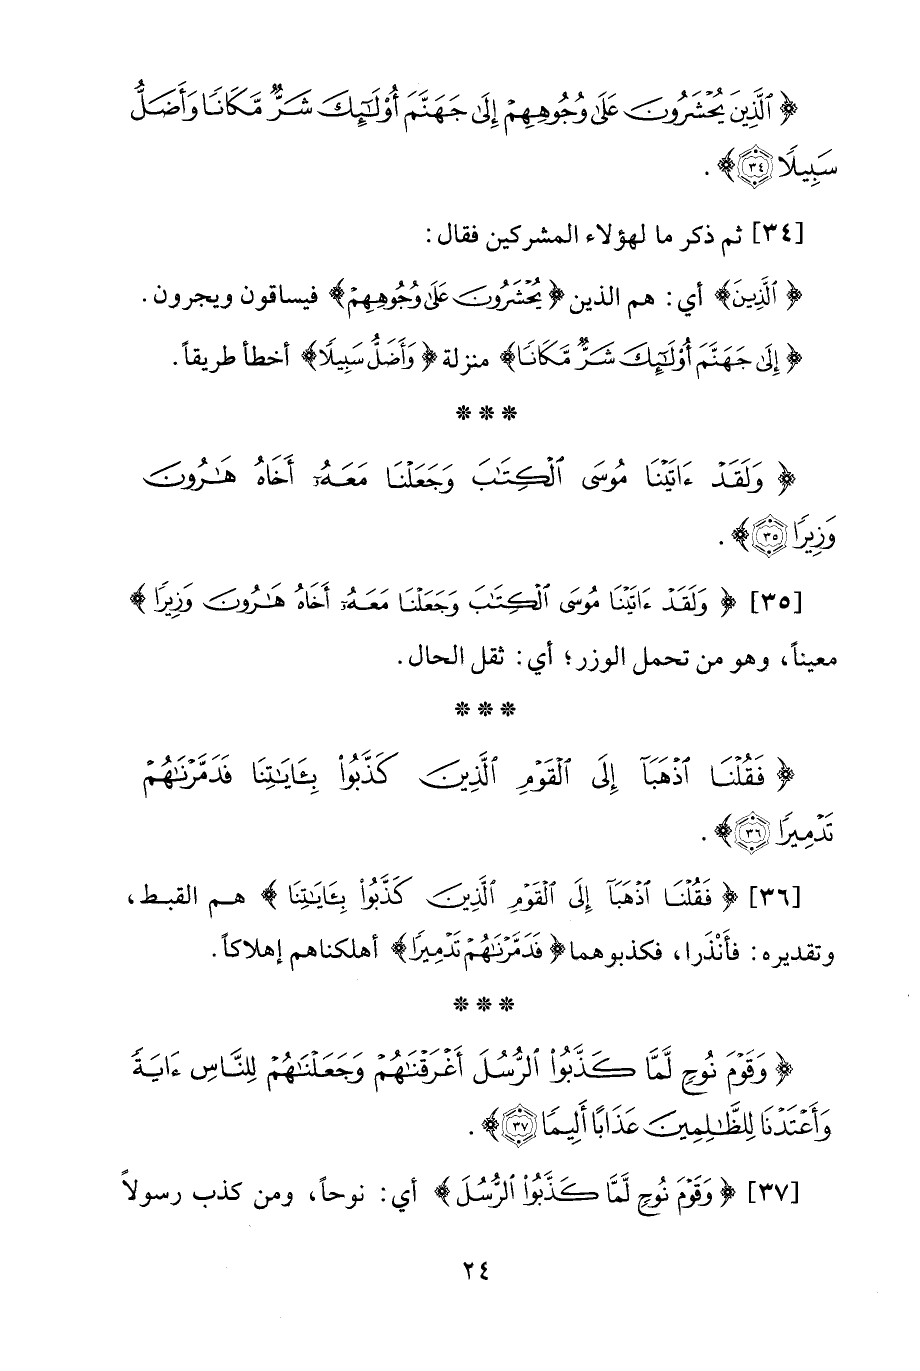 ﴿ ٱلَّذِينَ يُحْشَرُونَ عَلَىٰ وُجُوهِهِمْ إِلَىٰ جَهَنَّمَ أُوْلَٰٓئِكَ شَرٌّ مَّكَانًا وَأَضَلُّ
سَبِيلًا ٣٤ ﴾ .
[٣٤] ثم ذكر ما لهؤلاء المشركين فقال :
﴿ ٱلَّذِينَ ﴾ أي : هم الذين ﴿ يُحْشَرُونَ عَلَىٰ وُجُوهِهِمْ ﴾ فيساقون ويجرون .
﴿ إِلَىٰ جَهَنَّمَ أُوْلَٰٓئِكَ شَرٌّ مَّكَانًا ﴾ منزلة ﴿ وَأَضَلُّ سَبِيلًا ﴾ أخطأ طريقاً .
* * *
﴿ وَلَقَدْ ءَاتَيْنَا مُوسَى ٱلْكِتَٰبَ وَجَعَلْنَا مَعَهُۥٓ أَخَاهُ هَٰرُونَ
وَزِيرًا ٣٥ ﴾ .
[٣٥] ﴿ وَلَقَدْ ءَاتَيْنَا مُوسَى ٱلْكِتَٰبَ وَجَعَلْنَا مَعَهُۥٓ أَخَاهُ هَٰرُونَ وَزِيرًا ﴾
معيناً ، وهو من تحمل الوزر ؛ أي : ثقل الحال .
* * *
﴿ فَقُلْنَا ٱذْهَبَآ إِلَى ٱلْقَوْمِ ٱلَّذِينَ كَذَّبُوا۟ بِـَٔايَٰتِنَا فَدَمَّرْنَٰهُمْ
تَدْمِيرًا ٣٦ ﴾ .
[٣٦] ﴿ فَقُلْنَا ٱذْهَبَآ إِلَى ٱلْقَوْمِ ٱلَّذِينَ كَذَّبُوا۟ بِـَٔايَٰتِنَا ﴾ هم القبط ،
وتقديره : فأَنْذَرا ، فكذبوهما ﴿ فَدَمَّرْنَٰهُمْ تَدْمِيرًا ﴾ أهلكناهم إهلاكاً .
* * *
﴿ وَقَوْمَ نُوحٍ لَّمَّا كَذَّبُوا۟ ٱلرُّسُلَ أَغْرَقْنَٰهُمْ وَجَعَلْنَٰهُمْ لِلنَّاسِ ءَايَةً
وَأَعْتَدْنَا لِلظَّٰلِمِينَ عَذَابًا أَلِيمًا ٣٧ ﴾ .
[٣٧] ﴿ وَقَوْمَ نُوحٍ لَّمَّا كَذَّبُوا۟ ٱلرُّسُلَ ﴾ أي : نوحاً ، ومن كذب رسولاً
٢٤